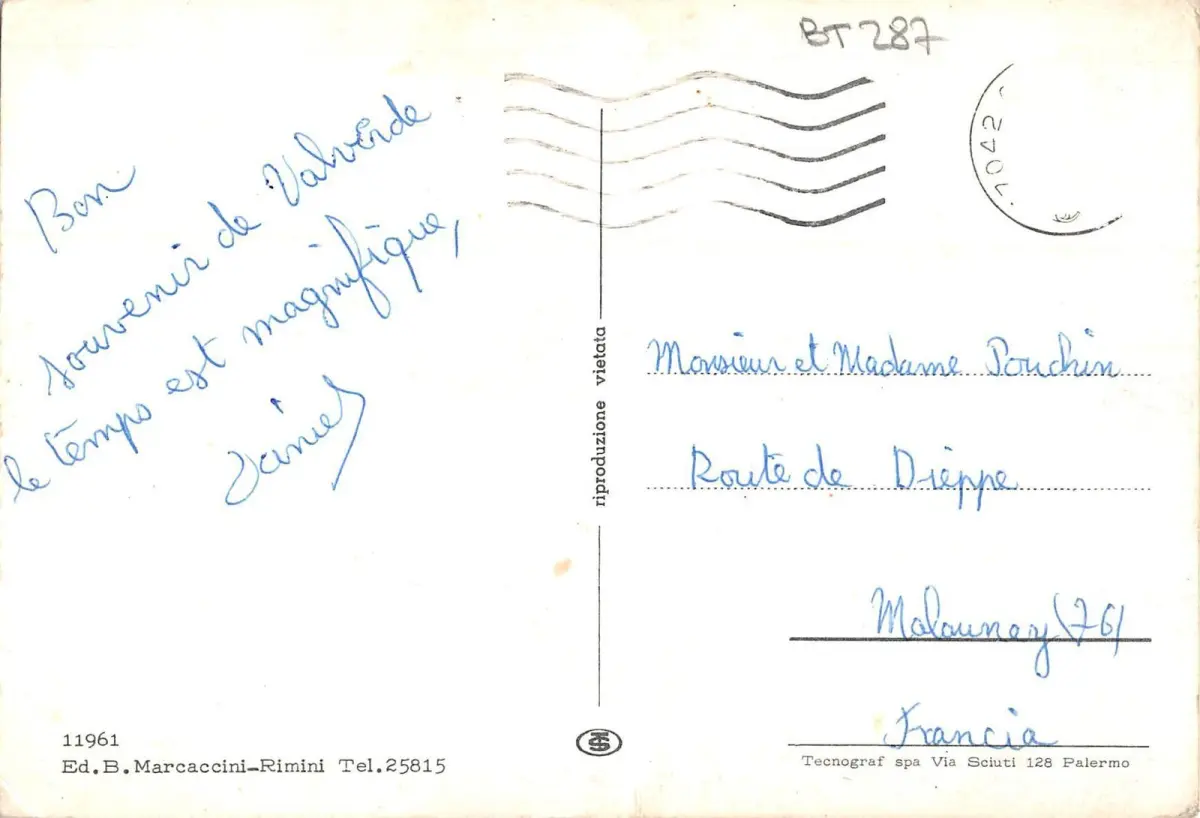 BT 287
Bon
souvenir de Valverde
le temps est magnifique,
Daniel
riproduzione vietata
Monsieur et Madame Pouchin
Route de Dieppe
Malaunay (76)
Francia
11961
Ed.B.Marcaccini-Rimini Tel.25815
Tecnograf spa Via Sciuti 128 Palermo